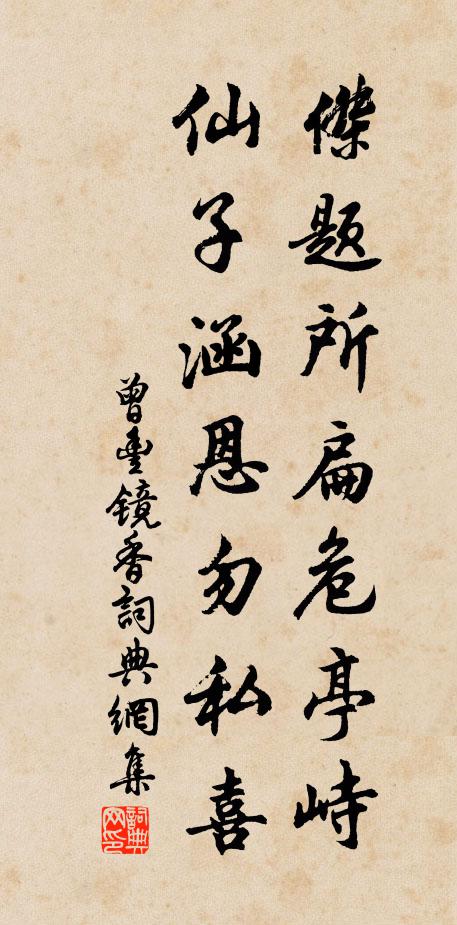 傑題所扁危亭峙
仙子涵恩勿私喜
曾豐鏡香詞典網集
詞典網印